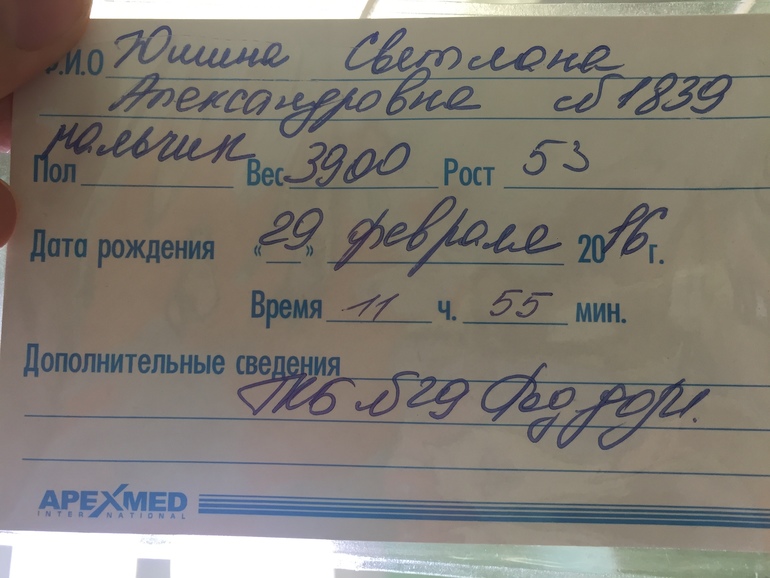 Ф.И.О Юмина Светлана
Александровна № 1839
Пол мальчик Вес 3900 Рост 53
Дата рождения «29» февраля 2016 г.
Время 11 ч. 55 мин.
Дополнительные сведения
ГКБ №29 род дом.
APEXMED
INTERNATIONAL